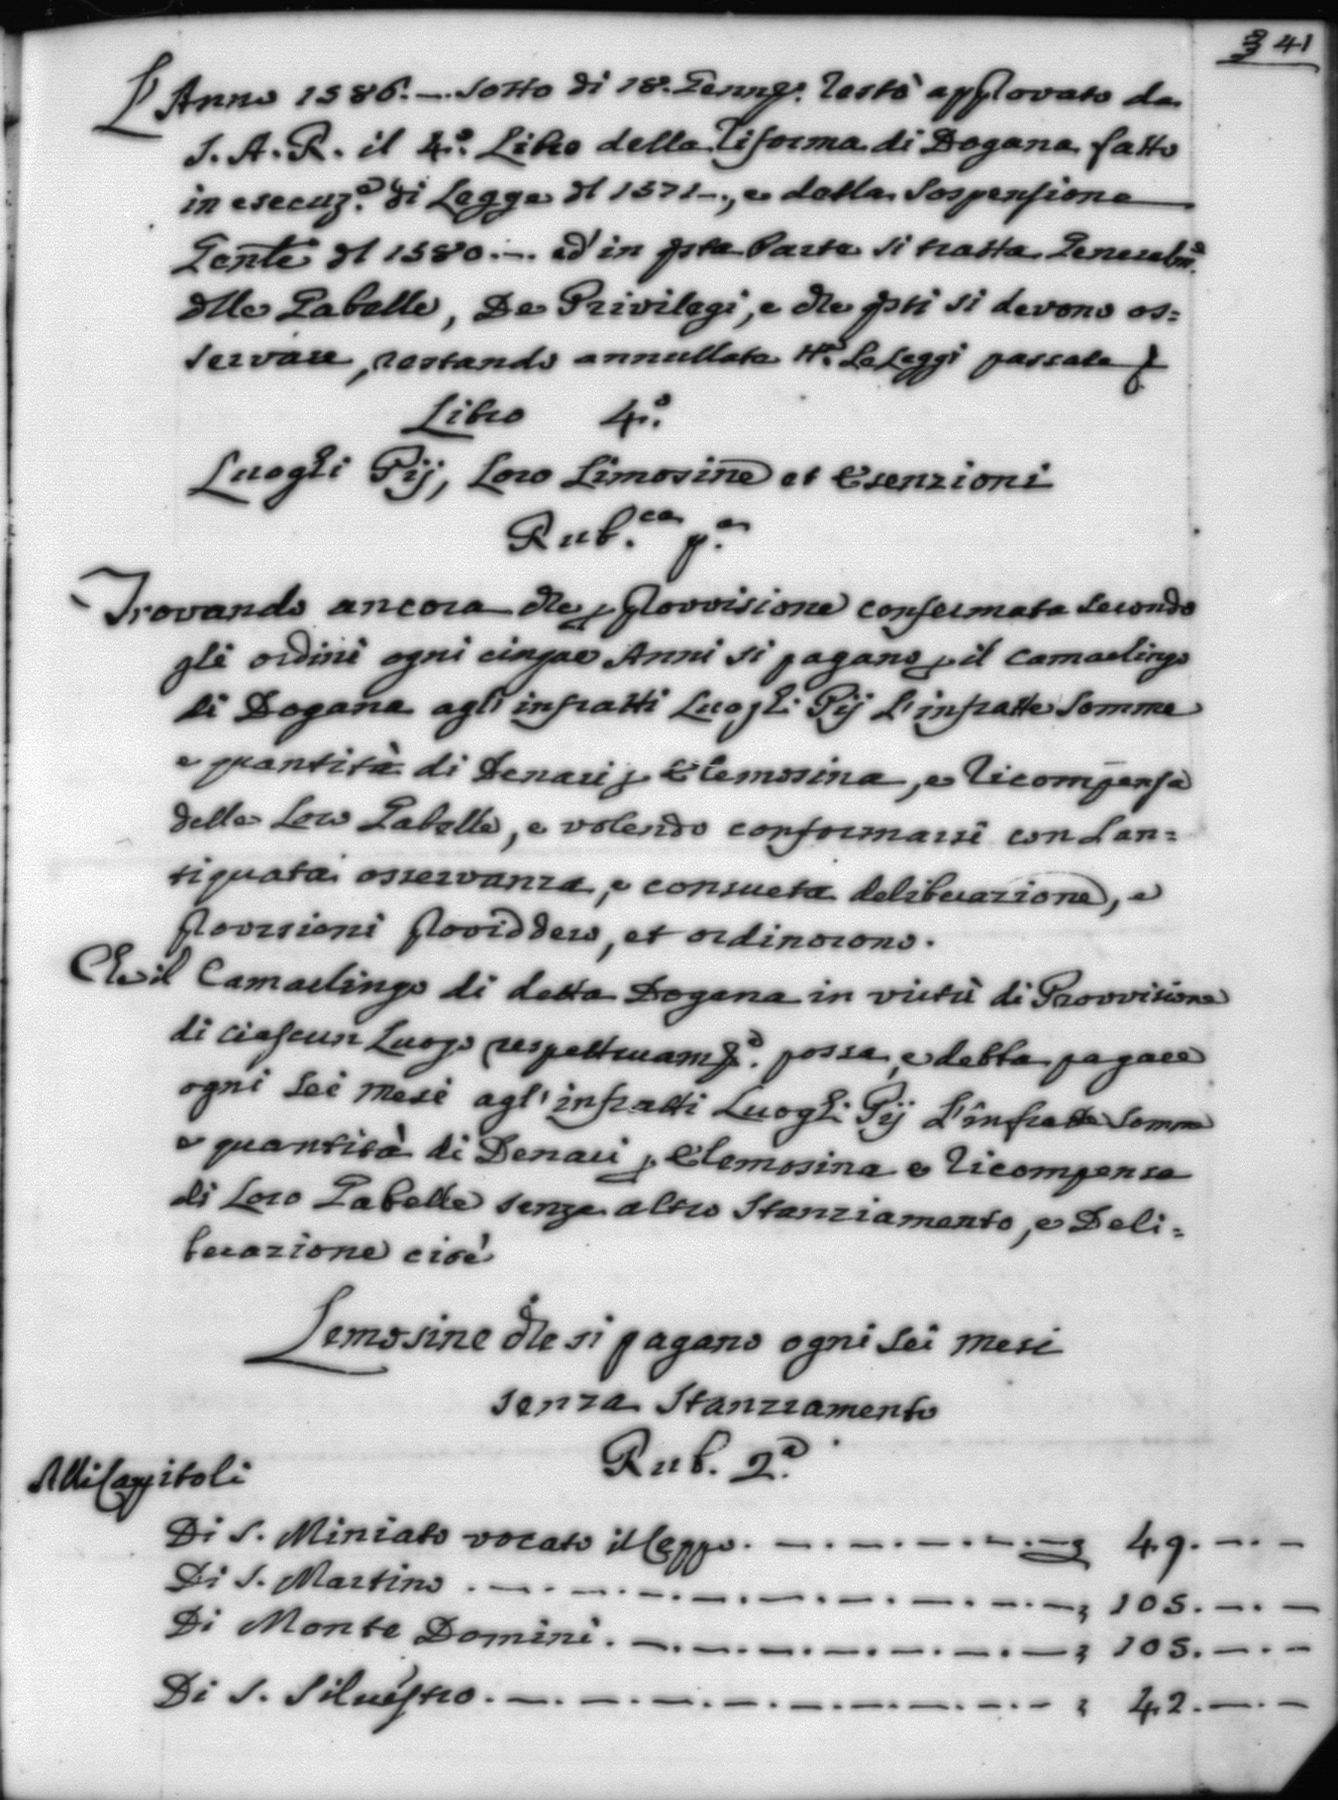 41
L'Anno 1586. — Sotto di 18. Genn.º restò approvato da
S. A. R. il 4.º Libro della riforma di Dogana fatto
in esecuz.e di Legge dl 1571 —, e della Sospensione
Gen̄te dl 1580. —. ed' in qsta Parte si tratta Generalm.e
dlle Gabelle, De Privilegi, e che qsti si devono os=
servare, restando annullate tt.e Le Leggi passate
Libro 4.º
Luoghi Pij, Loro Limosine et Esenzioni
Rub.ca p.a
Trovando ancora che p provvisione confermata secondo
gli ordini ogni cinque Anni si pagano p il Camarlingo
di Dogana agl'infratti Luoghi Pij L'infratte Somme
e quantità di Denari p Elemosina, e ricompensa
delle Loro Gabelle, e volendo conformarsi con L'an=
tiquata osservanza, e consueta deliberazione, e
provisioni providdero, et ordinorono.
Che il Camarlingo di detta Dogana in virtù di Provvisione
di ciascun Luogo respettivam.e possa, e debba pagare
ogni Sei Mesi agl'infratti Luoghi Pij L'infratte Somme
e quantità di Denari p Elemosina e ricompensa
di Loro Gabelle senza altro Stanziamento, e Deli=
berazione cioè
Lemosine che si pagano ogni Sei Mesi
senza Stanziamento
Rub. 2.a
Alli Cappitoli
Di S. Miniato vocato il Ceppo. — . — . — . — . — 49. — . —
Di S. Martino . — . — . — . — . — . — . — 105. — . —
Di Monte Domini . — . — . — . — . — . — 105. — . —
Di S. Silvestro . — . — . — . — . — . — . — 42. — . —